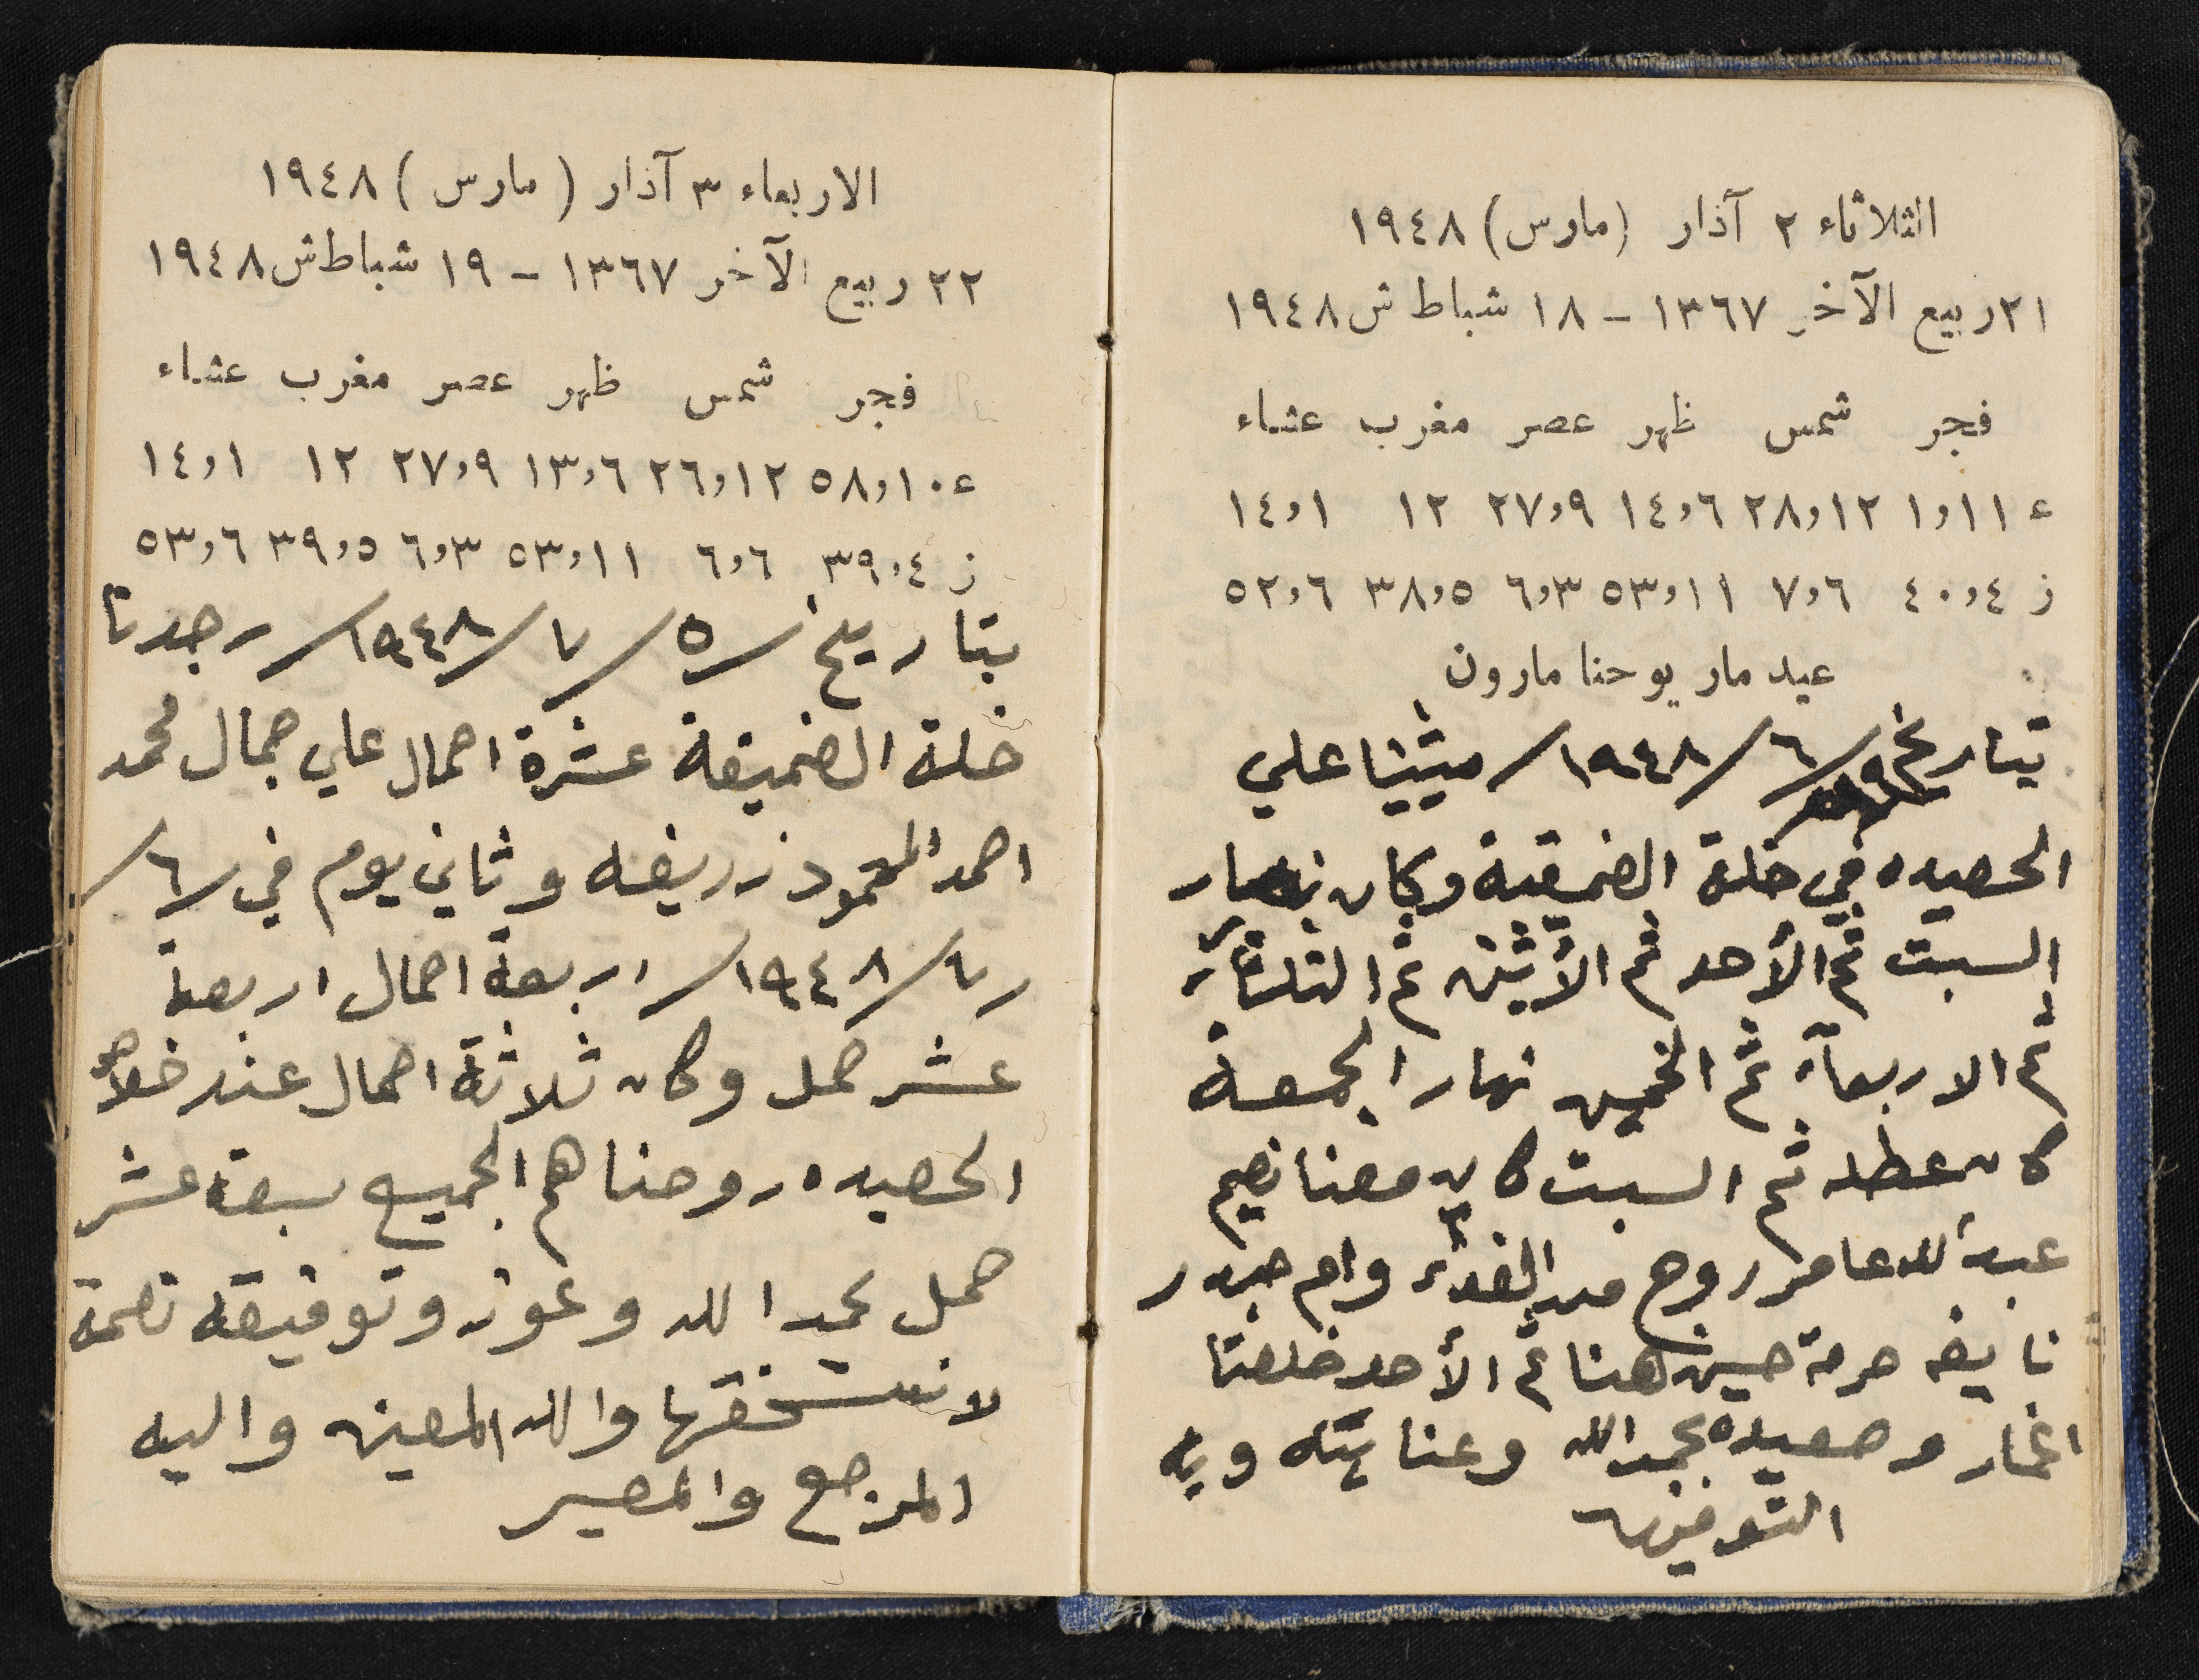 الثلاثاء ٢ آذار (مارس) ١٩٤٨
٢١ ربيع الآخر ١٣٦٧ – ١٨ شباط ش ١٩٤٨
فجر شمس ظهر عصر مغرب عشاء
ع ١،١١ ٢٨،١٢ ١٤،٦ ٢٧،٩ ١٢ ١٤،١
ز ٤٠،٤ ٧،٦ ٥٣،١١ ٦،٣ ٣٨،٥ ٥٢،٦
عيد مار يوحنا مارون
بتاريخ ١٩/٦/١٩٤٨/ مشينا على
الحصيده في خلة الضميقة وكان نهار
السبت ثم الأحد ثم الأثنين ثم الثلثاء
ثم الاربعآء ثم الخميس نهار الجمعة
كان عطله ثم السبت كان معنا نعيم
عبدالله عامر روح من الغداء وام حيدر
نايفه حرمة حسين هنا ثم الأحد خلصنا
اغمار وحصيده بحمد الله وعنايته وبه
التوفيق
الاربعاء ٣ آذار (مارس) ١٩٤٨
٢٢ ربيع الآخر ١٣٦٧ – ١٩ شباط ش ١٩٤٨
فجر شمس ظهر عصر مغرب عشاء
ع ٥٨،١٠ ٢٦،١٢ ١٣،٦ ٢٧،٩ ١٢ ١٤،١
ز ٣٩،٤ ٦،٦ ٥٣،١١ ٦،٣ ٣٩،٥ ٥٣،٦
بتاريخ /٥/٧/١٩٤٨/ رجدنا
خلة الضميقة عشرة احمال علي جمال محمد
احمد المحمود زريفه وثاني يوم في /٦/
٧/١٩٤٨/ اربعة احمال اربعة
عشر حمل وكان ثلاثة احمال عند
الحصيده روحناهم الجميع سبعة عشر
حمل بحمد الله وعونه وتوفيقه نعمة
لا نستحقها والله المعين واليه
المرجع والمصير